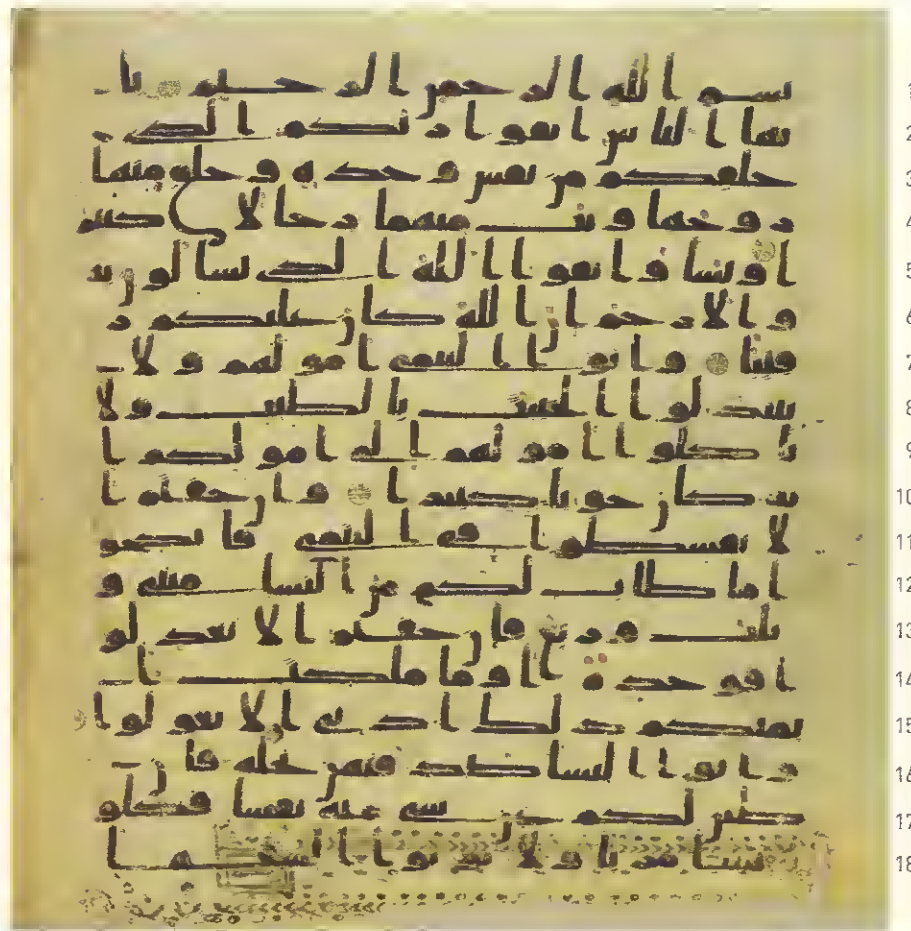 بسم الله الرحمن الرحيم يا 1
يها الناس اتقوا ربكم الذي 2
خلقكم من نفس وحدة وخلق منها 3
زوجها وبث منهما رجالا كثير 4
ا ونسا واتقوا الله الذي تسالون به 5
والارحم ان الله كان عليكم ر 6
قيبا واتوا اليتمى امولهم ولا 7
تتبدلوا الخبيث بالطيب ولا 8
تاكلوا امولهم الى امولكم ا 9
نه كان حوبا كبيرا وان خفتم ا 10
لا تقسطوا في اليتمى فانكحو 11
ا ما طاب لكم من النسا مثنى و 12
ثلث وربع فان خفتم الا تعدلو 13
ا فوحدة او ما ملكت ا 14
يمنكم ذلك ادنى الا تعولوا 15
واتوا النسا صدقتهن نحلة فان 16
طبن لكم عن شي منه نفسا فكلو 17
ه هنيا مريا ولا توتوا السفها 18